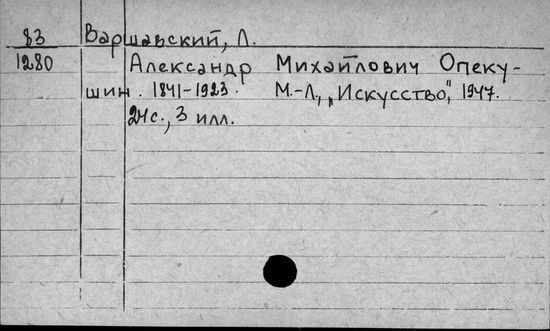 83 Варшавский, Л.
1280 Александр Михайлович Опеку-
шин. 1841-1923. М.-Л., "Искусство", 1947.
24с., 3 илл.